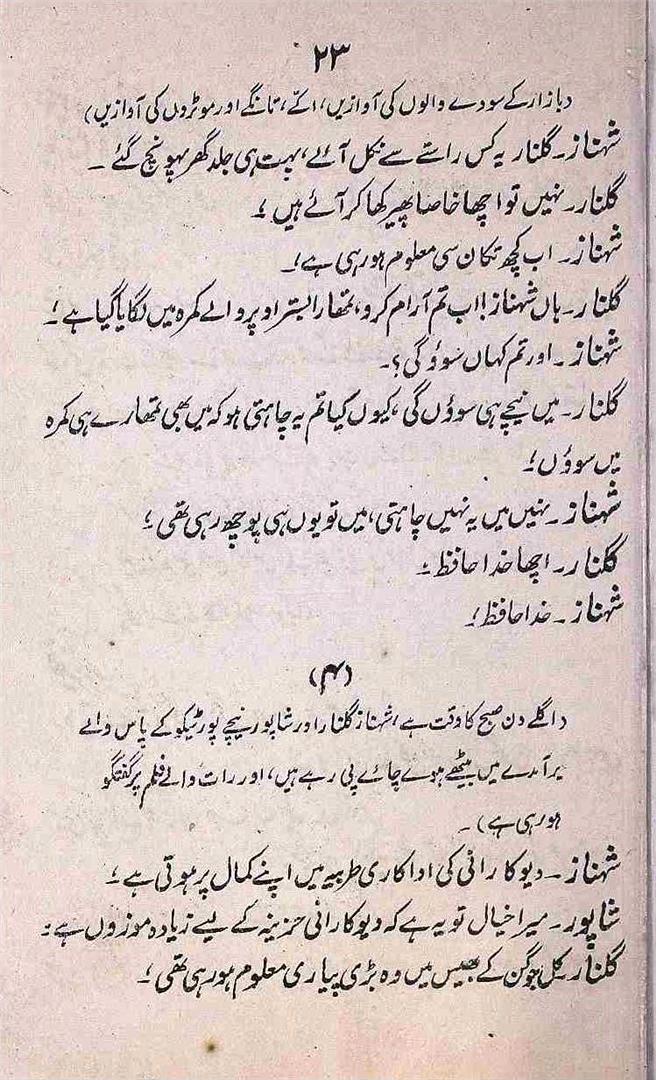 ۲۳
(بازار کے سودے والوں کی آوازیں، اکے، تانگے اور موٹروں کی آوازیں)
شہناز۔ گلنار یہ کس راستے سے نکل آئے، بہت ہی جلد گھر پہونچ گئے ۔
گلنار۔ نہیں تو اچھا خاصا پھیر کھا کر آئے ہیں !
شہناز۔ اب کچھ تکان سی معلوم ہو رہی ہے !۔
گلنار۔ ہاں شہناز! اب تم آرام کرو، تمھارا بستر اوپر والے کمرہ میں لگایا گیا ہے !
شہناز۔ اور تم کہاں سوؤ گی ؟۔
گلنار۔ میں نیچے ہی سوؤں گی، کیوں کیا تم یہ چاہتی ہو کہ میں بھی تمھارے ہی کمرہ
میں سوؤں !
شہناز۔ نہیں میں یہ نہیں چاہتی، میں تو یوں ہی پوچھ رہی تھی !
گلنار۔ اچھا خدا حافظ !
شہناز۔ خدا حافظ !
(۴)
(اگلے دن صبح کا وقت ہے، شہناز گلنار اور شاپور نیچے پورٹیکو کے پاس والے
برآمدے میں بیٹھے ہوے چائے پی رہے ہیں، اور رات والے فلم پر گفتگو
ہو رہی ہے) ۔
شہناز۔ دیوکا رانی کی اداکاری طربیہ میں اپنے کمال پر ہوتی ہے !
شاپور۔ میرا خیال تو یہ ہے کہ دیوکا رانی حزینہ کے لیے زیادہ موزوں ہے :
گلنار۔ کل جوگن کے بھیس میں وہ بڑی پیاری معلوم ہو رہی تھی !